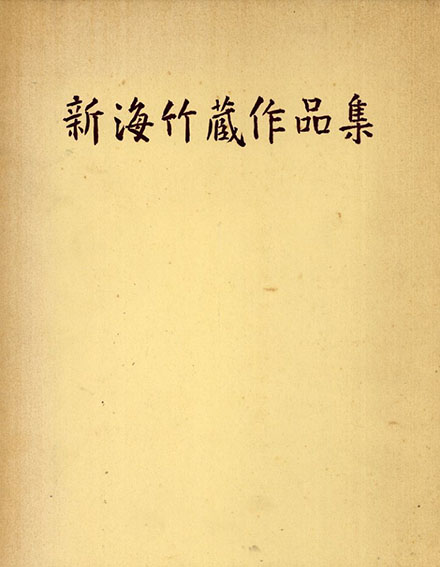 新海竹蔵作品集